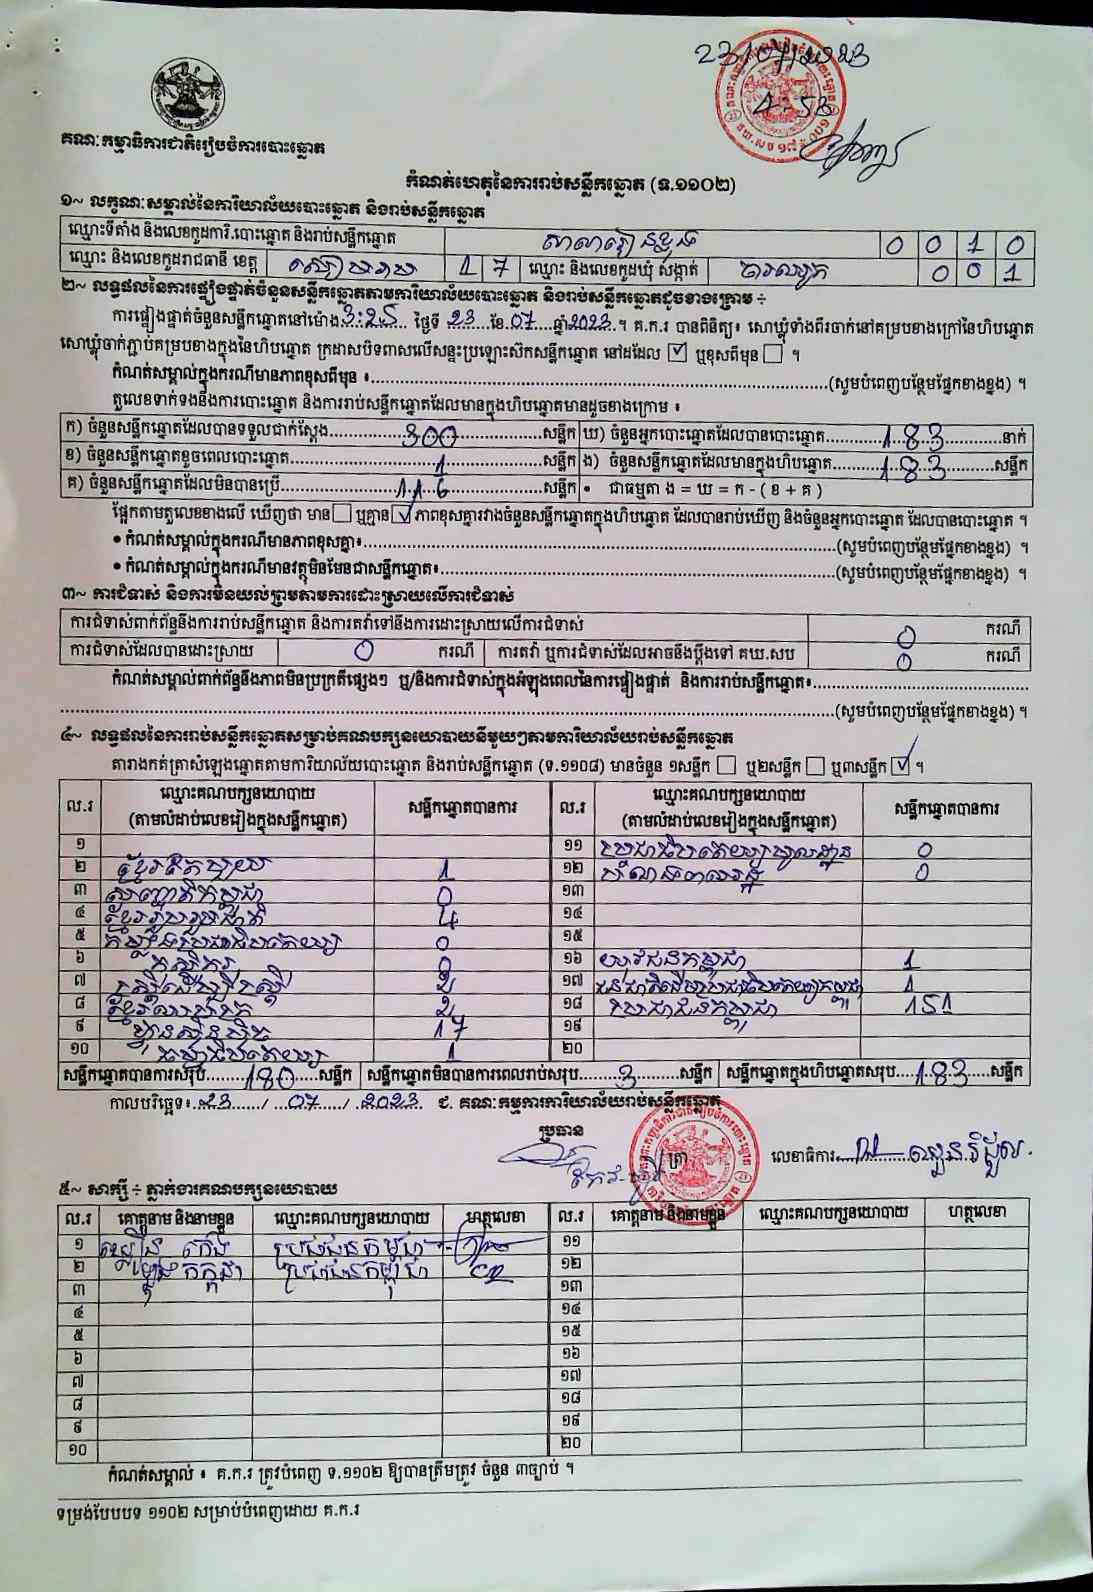 23/07/2023
4-53
គណៈកម្មាធិការជាតិរៀបចំការបោះឆ្នោត
កំណត់ហេតុនៃការរាប់សន្លឹកឆ្នោត (ទ.១១០២)
១~ លក្ខណៈសម្គាល់នៃការិយាល័យបោះឆ្នោត និងរាប់សន្លឹកឆ្នោត
ឈ្មោះទីតាំង និងលេខកូដការិ.បោះឆ្នោត និងរាប់សន្លឹកឆ្នោត 0 0 1 0
ឈ្មោះ និងលេខកូដរាជធានី ខេត្ត សៀមរាប 1 7 ឈ្មោះ និងលេខកូដឃុំ សង្កាត់ 0 0 1
២~ លទ្ធផលនៃការផ្ទៀងផ្ទាត់ចំនួនសន្លឹកឆ្នោតតាមការិយាល័យបោះឆ្នោត និងរាប់សន្លឹកឆ្នោតដូចខាងក្រោម ÷
ការផ្ទៀងផ្ទាត់ចំនួនសន្លឹកឆ្នោតនៅម៉ោង 3:25 ថ្ងៃទី 23 ខែ 07 ឆ្នាំ 2023 ។ គ.ក.រ បានពិនិត្យ៖ សោឃ្លុំទាំងពីរចាក់នៅគម្របខាងក្រៅនៃហិបឆ្នោត
សោឃ្លុំចាក់ភ្ជាប់គម្របខាងក្នុងនៃហិបឆ្នោត ក្រដាសបិទពាសលើសន្ទះប្រឡោះស៊កសន្លឹកឆ្នោត នៅដដែល ☑ ឬខុសពីមុន ☐ ។
កំណត់សម្គាល់ក្នុងករណីមានភាពខុសពីមុន ៖ (សូមបំពេញបន្ថែមផ្នែកខាងខ្នង) ។
តួលេខទាក់ទងនឹងការបោះឆ្នោត និងការរាប់សន្លឹកឆ្នោតដែលមានក្នុងហិបឆ្នោតមានដូចខាងក្រោម ៖
ក) ចំនួនសន្លឹកឆ្នោតដែលបានទទួលជាក់ស្តែង 300 សន្លឹក ឃ) ចំនួនអ្នកបោះឆ្នោតដែលបានបោះឆ្នោត 183 នាក់
ខ) ចំនួនសន្លឹកឆ្នោតខូចពេលបោះឆ្នោត 1 សន្លឹក ង) ចំនួនសន្លឹកឆ្នោតដែលមានក្នុងហិបឆ្នោត 183 សន្លឹក
គ) ចំនួនសន្លឹកឆ្នោតដែលមិនបានប្រើ 116 សន្លឹក • ជាធម្មតា ង = ឃ = ក - ( ខ + គ )
ផ្អែកតាមតួលេខខាងលើ ឃើញថា មាន ☐ ឬគ្មាន ☑ ភាពខុសគ្នារវាងចំនួនសន្លឹកឆ្នោតក្នុងហិបឆ្នោត ដែលបានរាប់ឃើញ និងចំនួនអ្នកបោះឆ្នោត ដែលបានបោះឆ្នោត ។
• កំណត់សម្គាល់ក្នុងករណីមានភាពខុសគ្នា៖ (សូមបំពេញបន្ថែមផ្នែកខាងខ្នង) ។
• កំណត់សម្គាល់ក្នុងករណីមានវត្ថុមិនមែនជាសន្លឹកឆ្នោត៖ (សូមបំពេញបន្ថែមផ្នែកខាងខ្នង) ។
៣~ ការជំទាស់ និងការមិនយល់ព្រមតាមការដោះស្រាយលើការជំទាស់
ការជំទាស់ពាក់ព័ន្ធនឹងការរាប់សន្លឹកឆ្នោត និងការតវ៉ាទៅនឹងការដោះស្រាយលើការជំទាស់ 0 ករណី
ការជំទាស់ដែលបានដោះស្រាយ 0 ករណី ការតវ៉ា ឬការជំទាស់ដែលអាចនឹងប្តឹងទៅ គឃ.សប 0 ករណី
កំណត់សម្គាល់ពាក់ព័ន្ធនឹងភាពមិនប្រក្រតីផ្សេងៗ ឬ/និងការជំទាស់ក្នុងអំឡុងពេលនៃការផ្ទៀងផ្ទាត់ និងការរាប់សន្លឹកឆ្នោត៖
(សូមបំពេញបន្ថែមផ្នែកខាងខ្នង) ។
៤~ លទ្ធផលនៃការរាប់សន្លឹកឆ្នោតសម្រាប់គណបក្សនយោបាយនីមួយៗតាមការិយាល័យរាប់សន្លឹកឆ្នោត
តារាងកត់ត្រាសំឡេងឆ្នោតតាមការិយាល័យបោះឆ្នោត និងរាប់សន្លឹកឆ្នោត (ទ.១១០៨) មានចំនួន ១សន្លឹក ☐ ឬ២សន្លឹក ☐ ឬ៣សន្លឹក ☑ ។
ល.រ ឈ្មោះគណបក្សនយោបាយ (តាមលំដាប់លេខរៀងក្នុងសន្លឹកឆ្នោត) សន្លឹកឆ្នោតបានការ ល.រ ឈ្មោះគណបក្សនយោបាយ (តាមលំដាប់លេខរៀងក្នុងសន្លឹកឆ្នោត) សន្លឹកឆ្នោតបានការ
១ ១១ ប្រជាធិបតេយ្យមូលដ្ឋាន 0
២ ខ្មែរឥតក្បួយ 1 ១២ 0
៣ សញ្ជាតិកម្ពុជា 0 ១៣
៤ ខ្មែររួបរួមជាតិ 4 ១៤
៥ កម្លាំងប្រជាធិបតេយ្យ 0 ១៥
៦ កសិករ 0 ១៦ យុវជនកម្ពុជា 1
៧ ស្ត្រីដើម្បីស្ត្រី 2 ១៧ ជនជាតិដើមប្រជាធិបតេយ្យកម្ពុជា 1
៨ 2 ១៨ ប្រជាជនកម្ពុជា 151
៩ ហ្វ៊ុនស៊ិនប៉ិច 17 ១៩
១០ ធម្មាធិបតេយ្យ 1 ២០
សន្លឹកឆ្នោតបានការសរុប 180 សន្លឹក សន្លឹកឆ្នោតមិនបានការពេលរាប់សរុប 3 សន្លឹក សន្លឹកឆ្នោតក្នុងហិបឆ្នោតសរុប 183 សន្លឹក
កាលបរិច្ឆេទ៖ 23 / 07 / 2023 ជ. គណៈកម្មការការិយាល័យរាប់សន្លឹកឆ្នោត
ប្រធាន
ត្រា
លេខាធិការ
៥~ សាក្សី ÷ ភ្នាក់ងារគណបក្សនយោបាយ
ល.រ គោត្តនាម និងនាមខ្លួន ឈ្មោះគណបក្សនយោបាយ ហត្ថលេខា ល.រ គោត្តនាម និងនាមខ្លួន ឈ្មោះគណបក្សនយោបាយ ហត្ថលេខា
១ ប្រជាជនកម្ពុជា ១១
២ ប្រជាជនកម្ពុជា ១២
៣ ១៣
៤ ១៤
៥ ១៥
៦ ១៦
៧ ១៧
៨ ១៨
៩ ១៩
១០ ២០
កំណត់សម្គាល់ ៖ គ.ក.រ ត្រូវបំពេញ ទ.១១០២ ឱ្យបានត្រឹមត្រូវ ចំនួន ៣ច្បាប់ ។
ទម្រង់បែបបទ ១១០២ សម្រាប់បំពេញដោយ គ.ក.រ